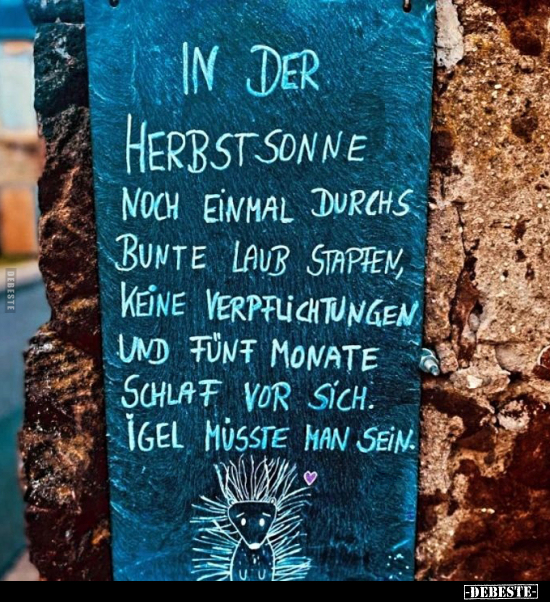 IN DER
HERBSTSONNE
NOCH EINMAL DURCHS
BUNTE LAUB STAPFEN,
KEINE VERPFLICHTUNGEN
UND FÜNF MONATE
SCHLAF VOR SICH.
IGEL MÜSSTE MAN SEIN.
DEBESTE
-DEBESTE-